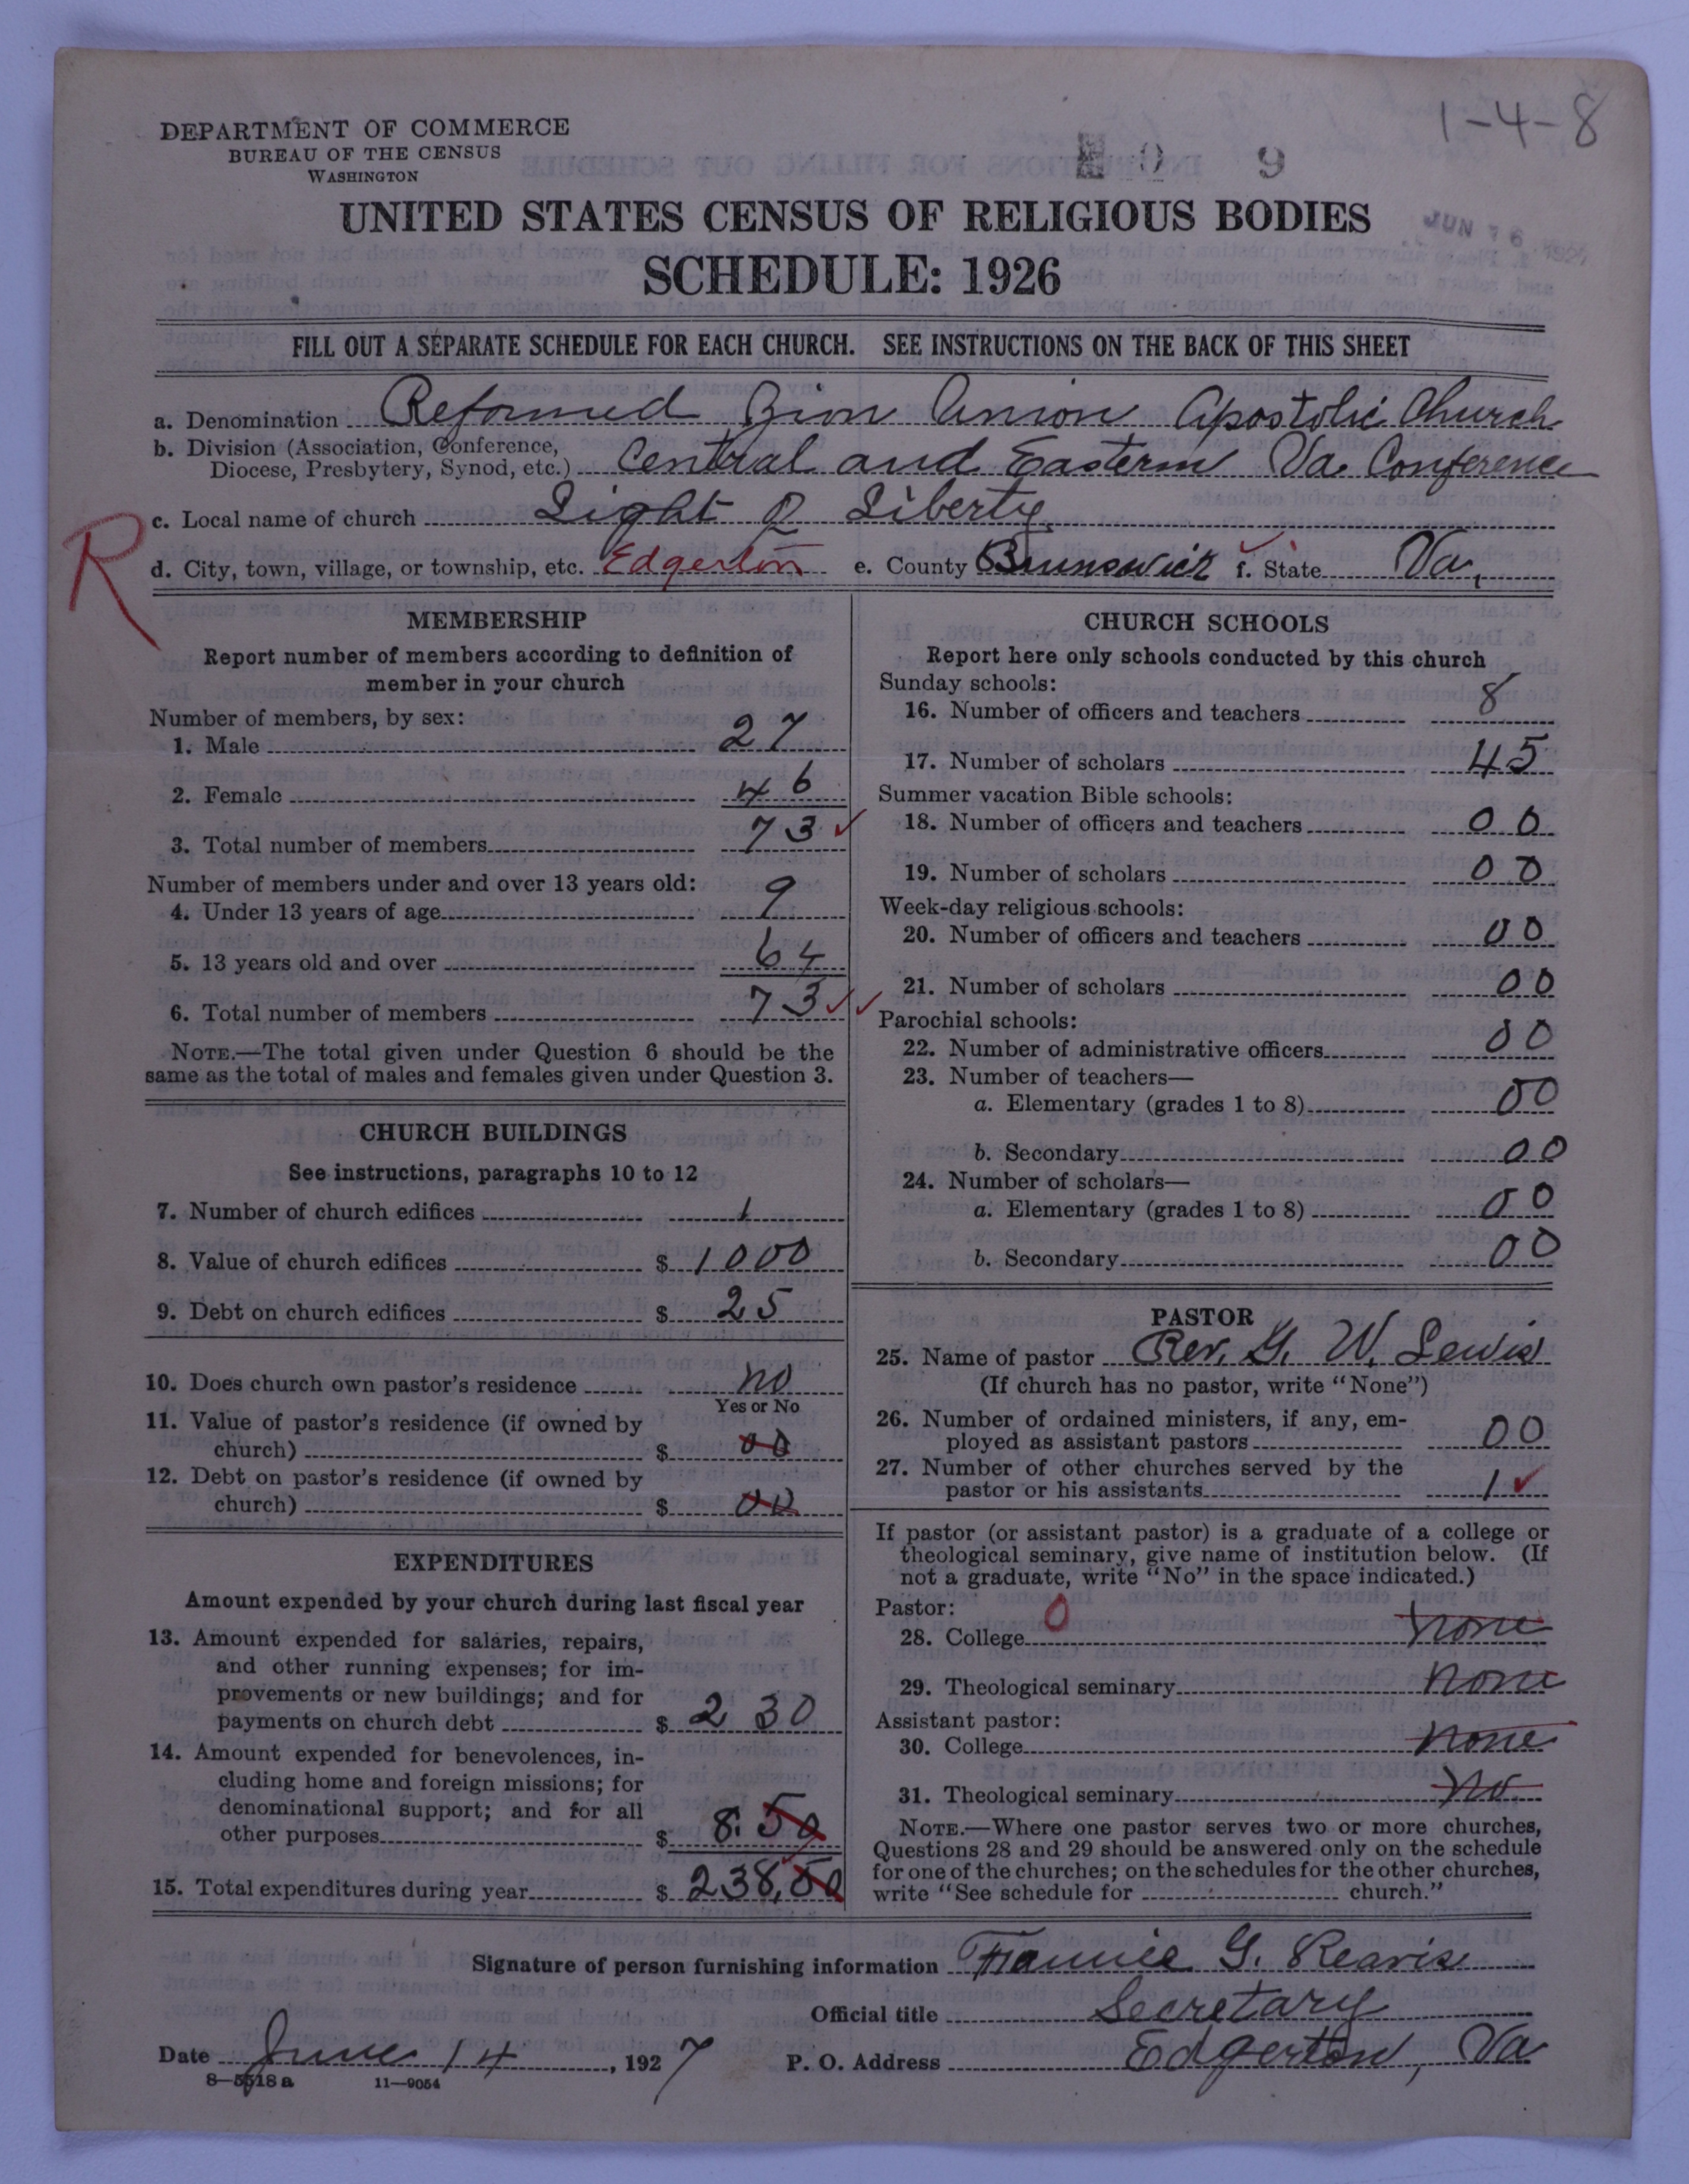 1-4-8
DEPARTMENT OF COMMERCE
BUREAU OF THE CENSUS
WASHINGTON
0 9
UNITED STATES CENSUS OF RELIGIOUS BODIES
JUN 16 1927
SCHEDULE: 1926
FILL OUT A SEPARATE SCHEDULE FOR EACH CHURCH. SEE INSTRUCTIONS ON THE BACK OF THIS SHEET
a. Denomination Reformed Zion Union Apostolic Church
b. Division (Association, Conference,
Diocese, Presbytery, Synod, etc.) Central and Eastern Va. Conference
c. Local name of church Light of Liberty
R
d. City, town, village, or township, etc. Edgerton e. County Brunswick f. State Va,
MEMBERSHIP
Report number of members according to definition of
member in your church
Number of members, by sex:
1. Male 27
2. Female 46
3. Total number of members 73 ✓
Number of members under and over 13 years old:
4. Under 13 years of age 9
5. 13 years old and over 64
6. Total number of members 73 ✓✓
NOTE.—The total given under Question 6 should be the
same as the total of males and females given under Question 3.
CHURCH BUILDINGS
See instructions, paragraphs 10 to 12
7. Number of church edifices 1
8. Value of church edifices $ 1000
9. Debt on church edifices $ 25
10. Does church own pastor's residence no
Yes or No
11. Value of pastor's residence (if owned by
church) $ 00
12. Debt on pastor's residence (if owned by
church) $ 00
EXPENDITURES
Amount expended by your church during last fiscal year
13. Amount expended for salaries, repairs,
and other running expenses; for im-
provements or new buildings; and for
payments on church debt $ 230
14. Amount expended for benevolences, in-
cluding home and foreign missions; for
denominational support; and for all
other purposes $ 8.50
15. Total expenditures during year $ 238.50
CHURCH SCHOOLS
Report here only schools conducted by this church
Sunday schools:
16. Number of officers and teachers 8
17. Number of scholars 45
Summer vacation Bible schools:
18. Number of officers and teachers 00
19. Number of scholars 00
Week-day religious schools:
20. Number of officers and teachers 00
21. Number of scholars 00
Parochial schools:
22. Number of administrative officers 00
23. Number of teachers—
a. Elementary (grades 1 to 8) 00
b. Secondary 00
24. Number of scholars—
a. Elementary (grades 1 to 8) 00
b. Secondary 00
PASTOR
25. Name of pastor Rev. G. W. Lewis
(If church has no pastor, write "None")
26. Number of ordained ministers, if any, em-
ployed as assistant pastors 00
27. Number of other churches served by the
pastor or his assistants 1 ✓
If pastor (or assistant pastor) is a graduate of a college or
theological seminary, give name of institution below. (If
not a graduate, write "No" in the space indicated.)
Pastor: 0
28. College none
29. Theological seminary none
Assistant pastor:
30. College none
31. Theological seminary no
NOTE.—Where one pastor serves two or more churches,
Questions 28 and 29 should be answered only on the schedule
for one of the churches; on the schedules for the other churches,
write "See schedule for church."
Signature of person furnishing information Fannie G. Reavis
Official title Secretary
Date June 14, 1927 P. O. Address Edgerton, Va
8—5518 a 11—9054